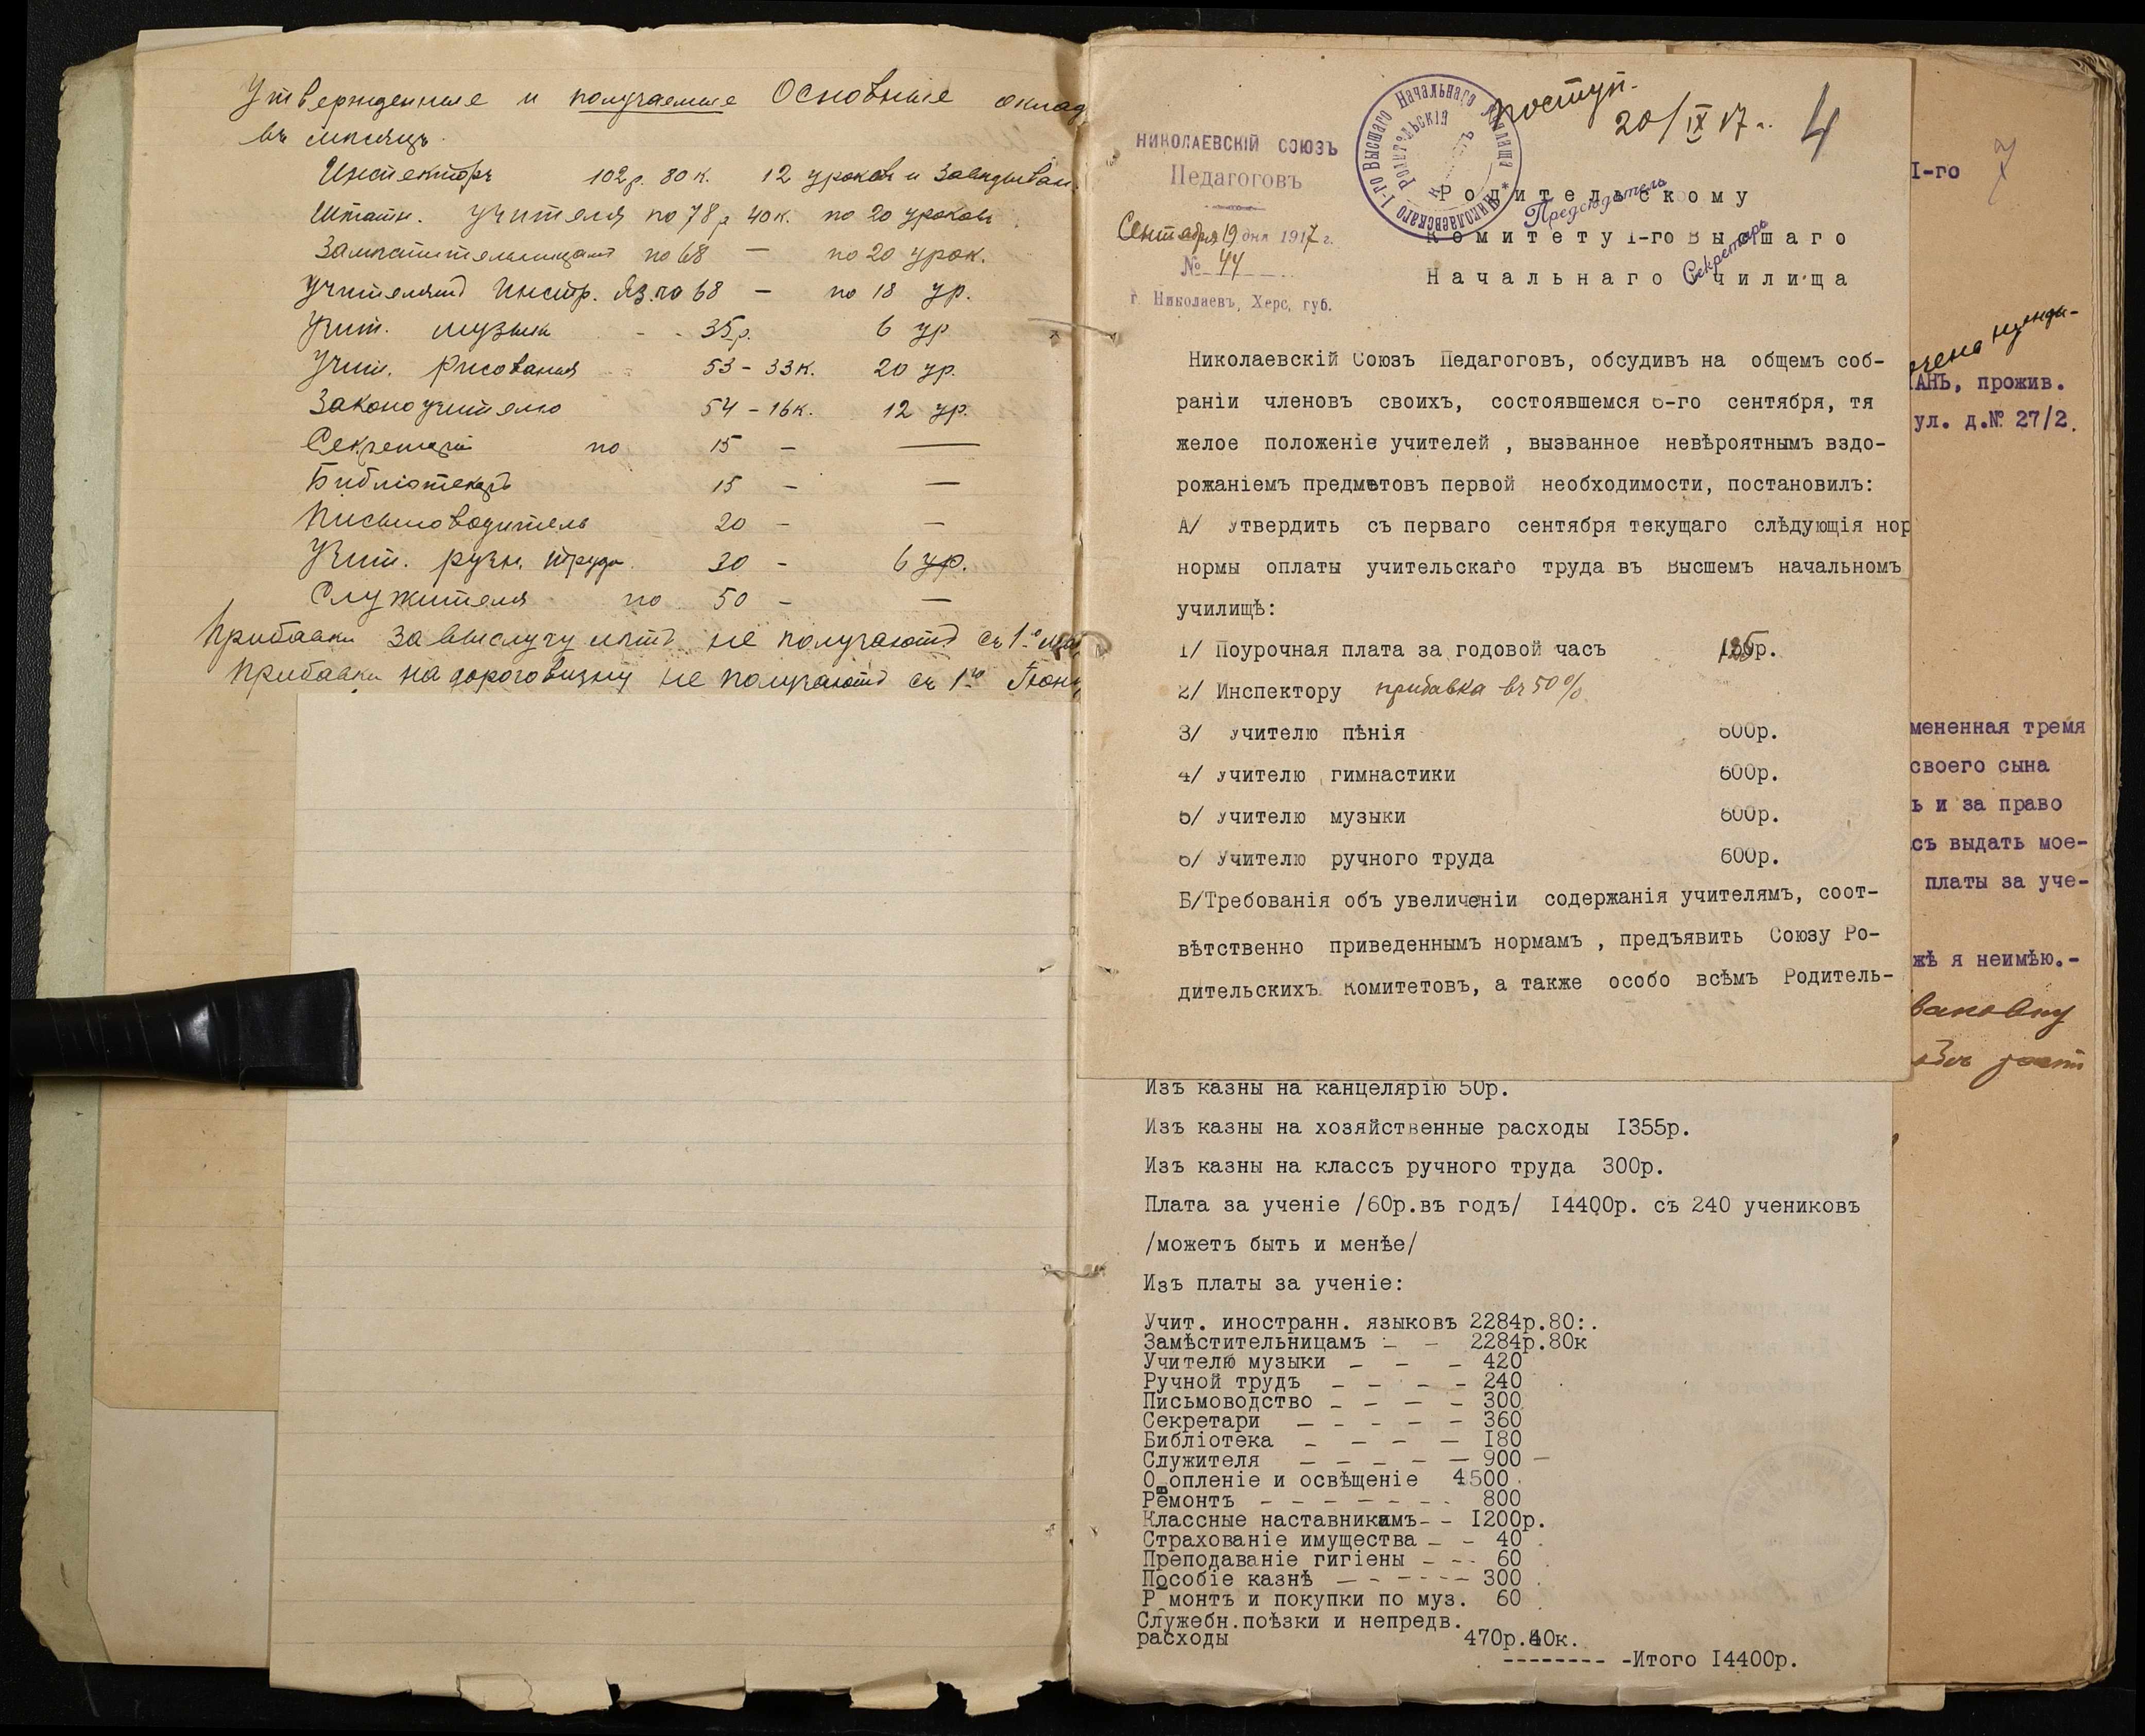 Утвержденные и получаемые Основные оклад
въ мѣсяцъ.
Инспекторъ 102р. 80к. 12 уроковъ и Завѣдыван.
Штатн. учителя по 78р 40к. по 20 уроковъ
Замѣстительницамъ по 68 — по 20 урок.
Учителямъ Иностр. Яз. по 68 — по 18 ур.
Учит. музыки - - 35р. 6 ур
Учит. рисованія 53 - 33к. 20 ур.
Законоучителю 54 - 16к. 12 ур.
Секретари по 15 — —
Библіотекарь 15 — —
Письмоводитель 20 — —
Учит. ручн. труда 30 — 6 ур.
Служителя по 50 — —
Прибавки за выслугу лѣтъ не получаютъ съ 1го
Прибавки на дороговизну не получаютъ съ 1го Іюн
НИКОЛАЕВСКІЙ СОЮЗЪ
Педагоговъ
Сентября 19 дня 1917 г.
№ 44
г. Николаевъ, Херс. губ.
Николаевскаго 1-го Высшаго Начальнаго Училища
Родительскій
Председатель
Секретарь
Поступ.
20/IX 17 г.
4
Родительскому
Комитету I-го Высшаго
Начальнаго Училища
Николаевскій Союзъ Педагоговъ, обсудивъ на общемъ соб-
раніи членовъ своихъ, состоявшемся 6-го сентября, тя
желое положеніе учителей , вызванное невѣроятнымъ вздо-
рожаніемъ предметовъ первой необходимости, постановилъ:
А/ Утвердить съ перваго сентября текущаго слѣдующія нор
нормы оплаты учительскаго труда въ Высшемъ начальномъ
училищѣ:
1/ Поурочная плата за годовой часъ р.
2/ Инспектору прибавка въ 50%
3/ Учителю пѣнія 600р.
4/ Учителю гимнастики 600р.
5/ Учителю музыки 600р.
6/ Учителю ручного труда 600р.
Б/Требованія объ увеличеніи содержанія учителямъ, соот-
вѣтственно приведеннымъ нормамъ , предъявить Союзу Ро-
дительскихъ Комитетовъ, а также особо всѣмъ Родитель-
Изъ казны на канцелярію 50р.
Изъ казны на хозяйственные расходы I355р.
Изъ казны на классъ ручного труда 300р.
Плата за ученіе /60р.въ годъ/ I4400р. съ 240 учениковъ
/можетъ быть и менѣе/
Изъ платы за ученіе:
Учит. иностранн. языковъ 2284р.80:.
Замѣстительницамъ - - 2284р.80к
Учителю музыки - - - 420
Ручной трудъ - - - - 240
Письмоводство - - - - 300
Секретари - - - - - 360
Библіотека - - - - I80
Служителя - - - - - 900 -
О опленіе и освѣщеніе 4500
Ремонтъ - - - - - - - 800
Классные наставникамъ- - I200р.
Страхованіе имущества - - 40
Преподаваніе гигіены - - - 60
Пособіе казнѣ - - - - - - 300
Р монтъ и покупки по муз. 60
Служебн.поѣзки и непредв.
расходы 470р.40к.
-------- -Итого I4400р.
I-го
7
АНЪ, прожив.
ул. д.№ 27/2.
мененная тремя
своего сына
ь и за право
сь выдать мое-
платы за уче-
жѣ я неимѣю.-